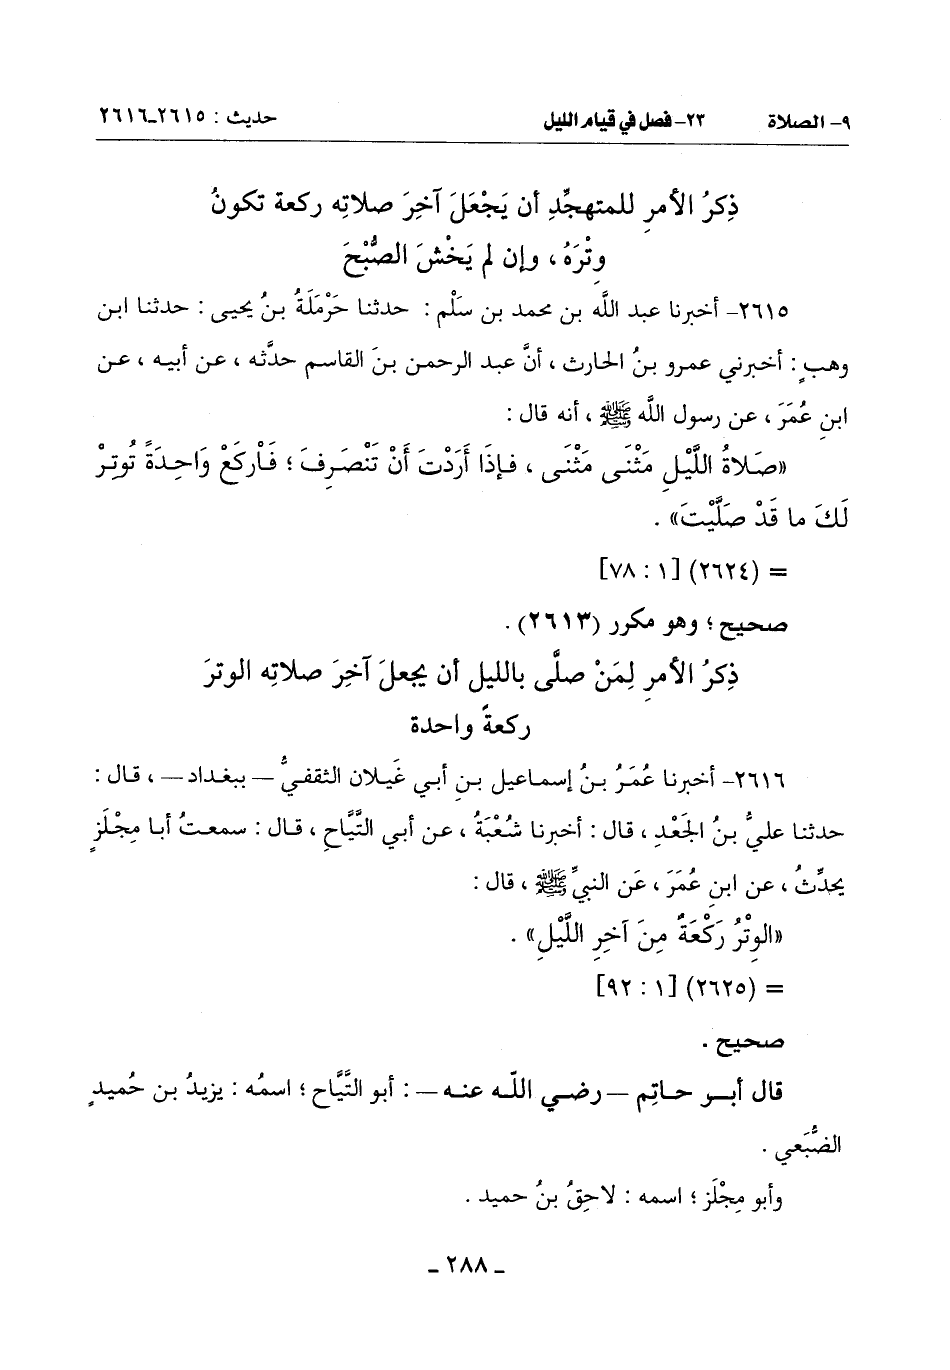 ٩- الصلاة ٢٣- فصل في قيام الليل حديث : ٢٦١٥-٢٦١٦
ذِكرُ الأمرِ للمتهجِّدِ أن يَجْعَلَ آخِرَ صلاتِه ركعة تكونُ
وِتْرَهُ ، وإن لم يَخْشَ الصُّبْحَ
٢٦١٥- أخبرنا عبد اللَّه بن محمد بن سَلْم : حدثنا حَرْمَلَةُ بنُ يحيى : حدثنا ابن
وهبٍ : أخبرني عمرو بنُ الحارث ، أنَّ عبد الرحمن بنَ القاسم حدَّثه ، عن أبيه ، عن
ابنِ عُمَرَ ، عن رسول اللَّه ﷺ ، أنه قال :
«صَلاةُ اللَّيْلِ مَثْنَى مَثْنَى ، فإذَا أَرَدْتَ أَنْ تَنْصَرِفَ ؛ فَارْكَعْ وَاحِدَةً تُوتِرْ
لَكَ ما قَدْ صَلَّيْتَ» .
= (٢٦٢٤) [١ : ٧٨]
صحيح ؛ وهو مكرر (٢٦١٣) .
ذِكرُ الأمرِ لِمَنْ صلَّى بالليل أن يجعلَ آخِرَ صلاتِه الوترَ
ركعةً واحدة
٢٦١٦- أخبرنا عُمَرُ بنُ إسماعيل بنِ أبي غَيلان الثقفيُّ — ببغداد — ، قال :
حدثنا عليُّ بنُ الجَعْدِ ، قال : أخبرنا شُعْبَةُ ، عن أبي التَّيَّاحِ ، قال : سمعتُ أبا مِجْلَزٍ
يحدِّثُ ، عن ابنِ عُمَرَ ، عَن النبيِّ ﷺ ، قال :
«الوِتْرُ رَكْعَةٌ مِنَ آخِرِ اللَّيْلِ» .
= (٢٦٢٥) [١ : ٩٢]
صحيح .
قال أبو حاتِم — رضي اللَّه عنه — : أبو التَّيَّاح ؛ اسمُه : يزيدُ بن حُميدٍ
الضُّبَعي .
وأبو مِجْلَز ؛ اسمه : لاحِقُ بنُ حميد .
- ٢٨٨ -